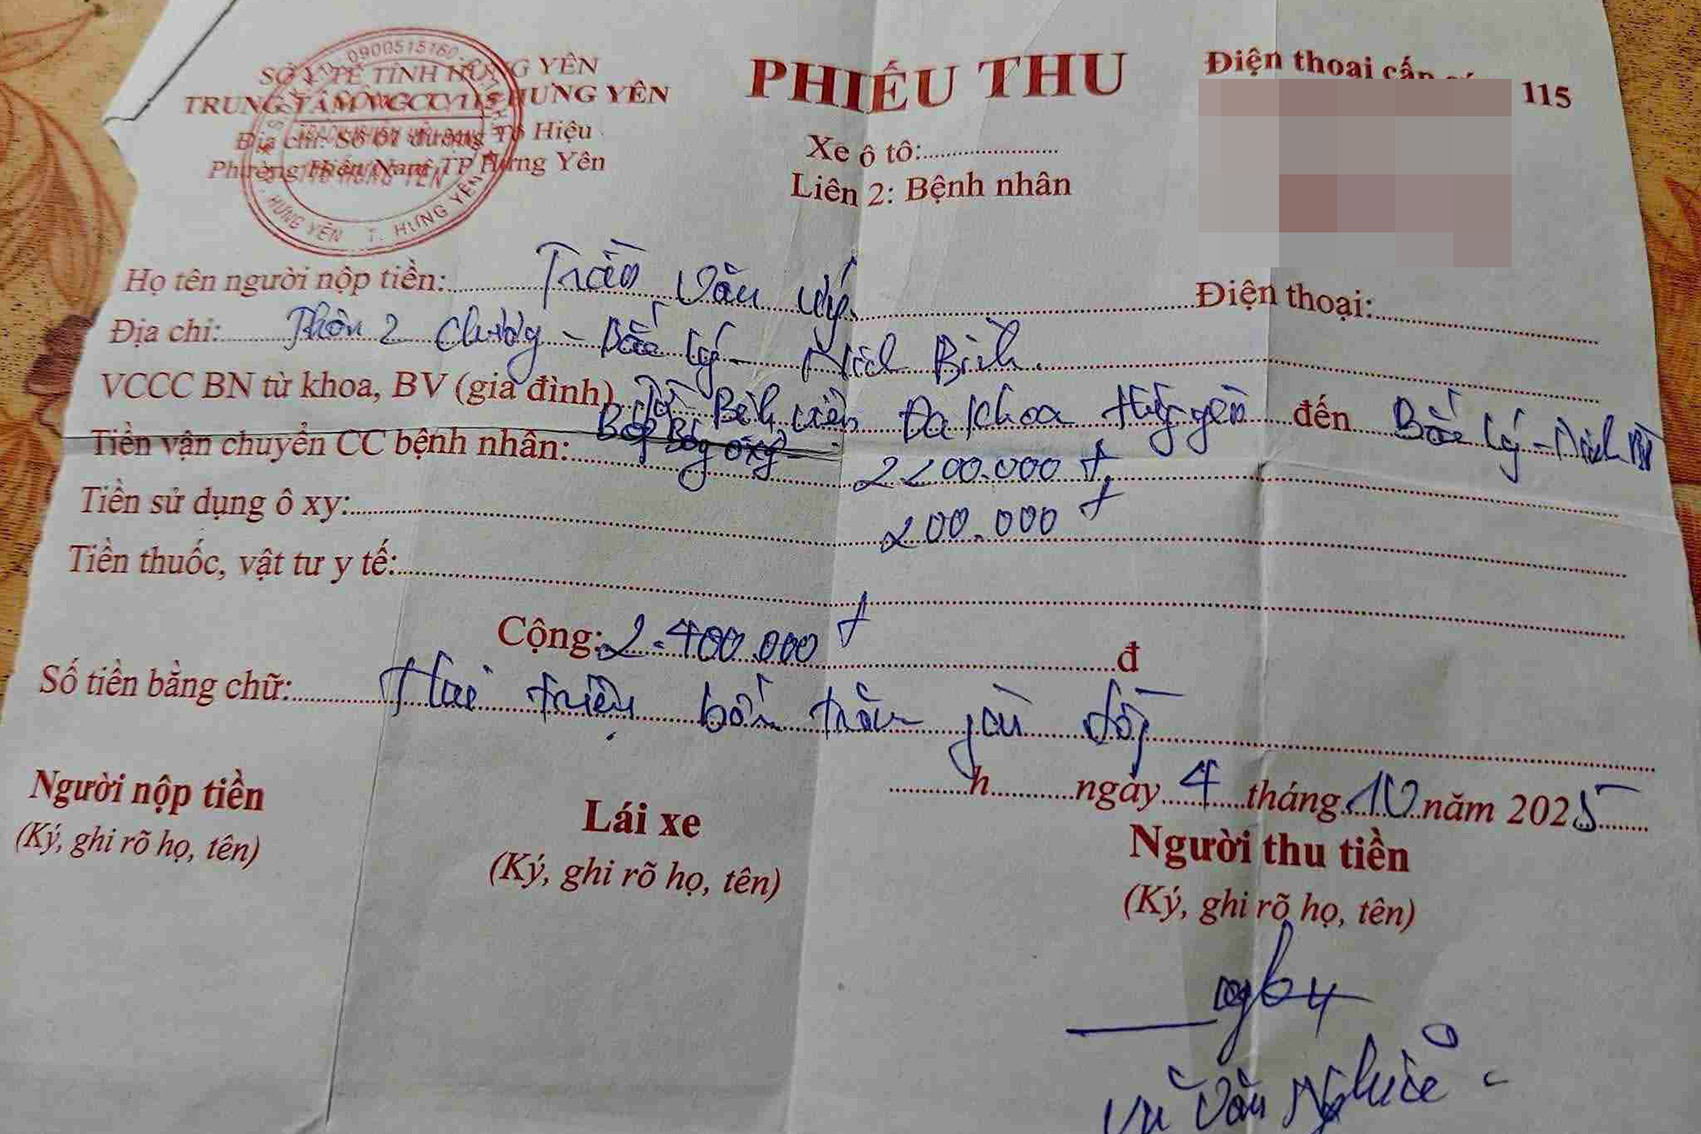 SỞ Y TẾ TỈNH HƯNG YÊN
TRUNG TÂM VCCC 115 HƯNG YÊN
Địa chỉ: Số 01 đường Tô Hiệu
Phường Hiến Nam TP Hưng Yên
0900515160
HƯNG YÊN T. HƯNG YÊN
PHIẾU THU
Xe ô tô:
Liên 2: Bệnh nhân
Điện thoại 115
Họ tên người nộp tiền: Trần Văn Uý Điện thoại:
Địa chỉ: Thôn 2 Chương - Bắc Lý - Ninh Bình.
VCCC BN từ khoa, BV (gia đình) Từ Bệnh viện Đa khoa Hưng Yên đến Bắc Lý - Ninh
Tiền vận chuyển CC bệnh nhân: Bóp Bóng oxy 2200.000 đ
Tiền sử dụng ô xy: 200.000 đ
Tiền thuốc, vật tư y tế:
Cộng: 2.400.000 đ đ
Số tiền bằng chữ: Hai triệu bốn trăm đồng
h ngày 4 tháng 10 năm 2025
Người nộp tiền
(Ký, ghi rõ họ, tên)
Lái xe
(Ký, ghi rõ họ, tên)
Người thu tiền
(Ký, ghi rõ họ, tên)
Vũ Văn